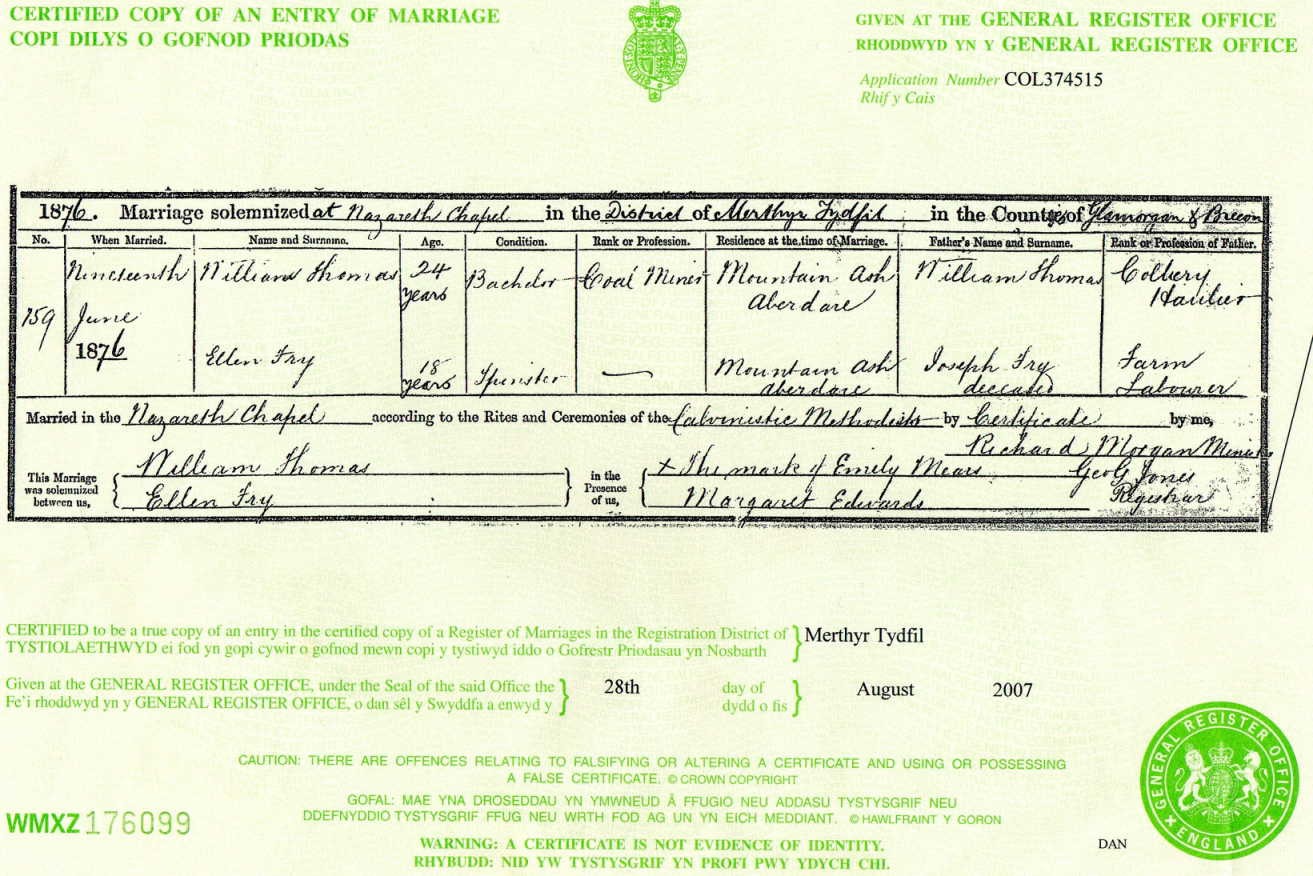 CERTIFIED COPY OF AN ENTRY OF MARRIAGE
COPI DILYS O GOFNOD PRIODAS
GIVEN AT THE GENERAL REGISTER OFFICE
RHODDWYD YN Y GENERAL REGISTER OFFICE
Application Number COL374515
Rhif y Cais
1876. Marriage solemnized at Nazareth Chapel in the District of Merthyr Tydfil in the Counties of Glamorgan & Brecon
No. When Married. Name and Surname. Age. Condition. Rank or Profession. Residence at the time of Marriage. Father's Name and Surname. Rank or Profession of Father.
159 Nineteenth June 1876
William Thomas 24 years Bachelor Coal Miner Mountain Ash Aberdare William Thomas Colliery Haulier
Ellen Fry 18 years Spinster — Mountain Ash Aberdare Joseph Fry deceased Farm Labourer
Married in the Nazareth Chapel according to the Rites and Ceremonies of the Calvinistic Methodists by Certificate by me,
Richard Morgan Minister
This Marriage was solemnized between us, William Thomas
Ellen Fry
in the Presence of us, X The mark of Emily Mears
Margaret Edwards
Geo G Jones
Registrar
CERTIFIED to be a true copy of an entry in the certified copy of a Register of Marriages in the Registration District of Merthyr Tydfil
TYSTIOLAETHWYD ei fod yn gopi cywir o gofnod mewn copi y tystiwyd iddo o Gofrestr Priodasau yn Nosbarth
Given at the GENERAL REGISTER OFFICE, under the Seal of the said Office the 28th day of August 2007
Fe'i rhoddwyd yn y GENERAL REGISTER OFFICE, o dan sêl y Swyddfa a enwyd y dydd o fis
CAUTION: THERE ARE OFFENCES RELATING TO FALSIFYING OR ALTERING A CERTIFICATE AND USING OR POSSESSING
A FALSE CERTIFICATE. © CROWN COPYRIGHT
GOFAL: MAE YNA DROSEDDAU YN YMWNEUD Â FFUGIO NEU ADDASU TYSTYSGRIF NEU
DDEFNYDDIO TYSTYSGRIF FFUG NEU WRTH FOD AG UN YN EICH MEDDIANT. © HAWLFRAINT Y GORON
WMXZ 176099
WARNING: A CERTIFICATE IS NOT EVIDENCE OF IDENTITY.
RHYBUDD: NID YW TYSTYSGRIF YN PROFI PWY YDYCH CHI.
DAN
GENERAL REGISTER OFFICE
ENGLAND